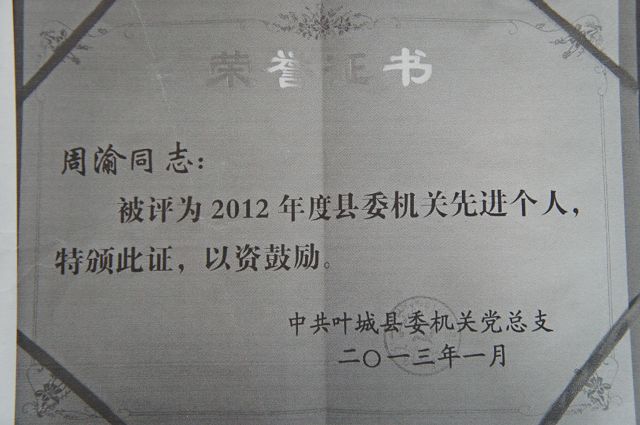 荣誉证书
周渝同志：
被评为2012年度县委机关先进个人，
特颁此证，以资鼓励。
中共叶城县委机关党总支
二〇一三年一月